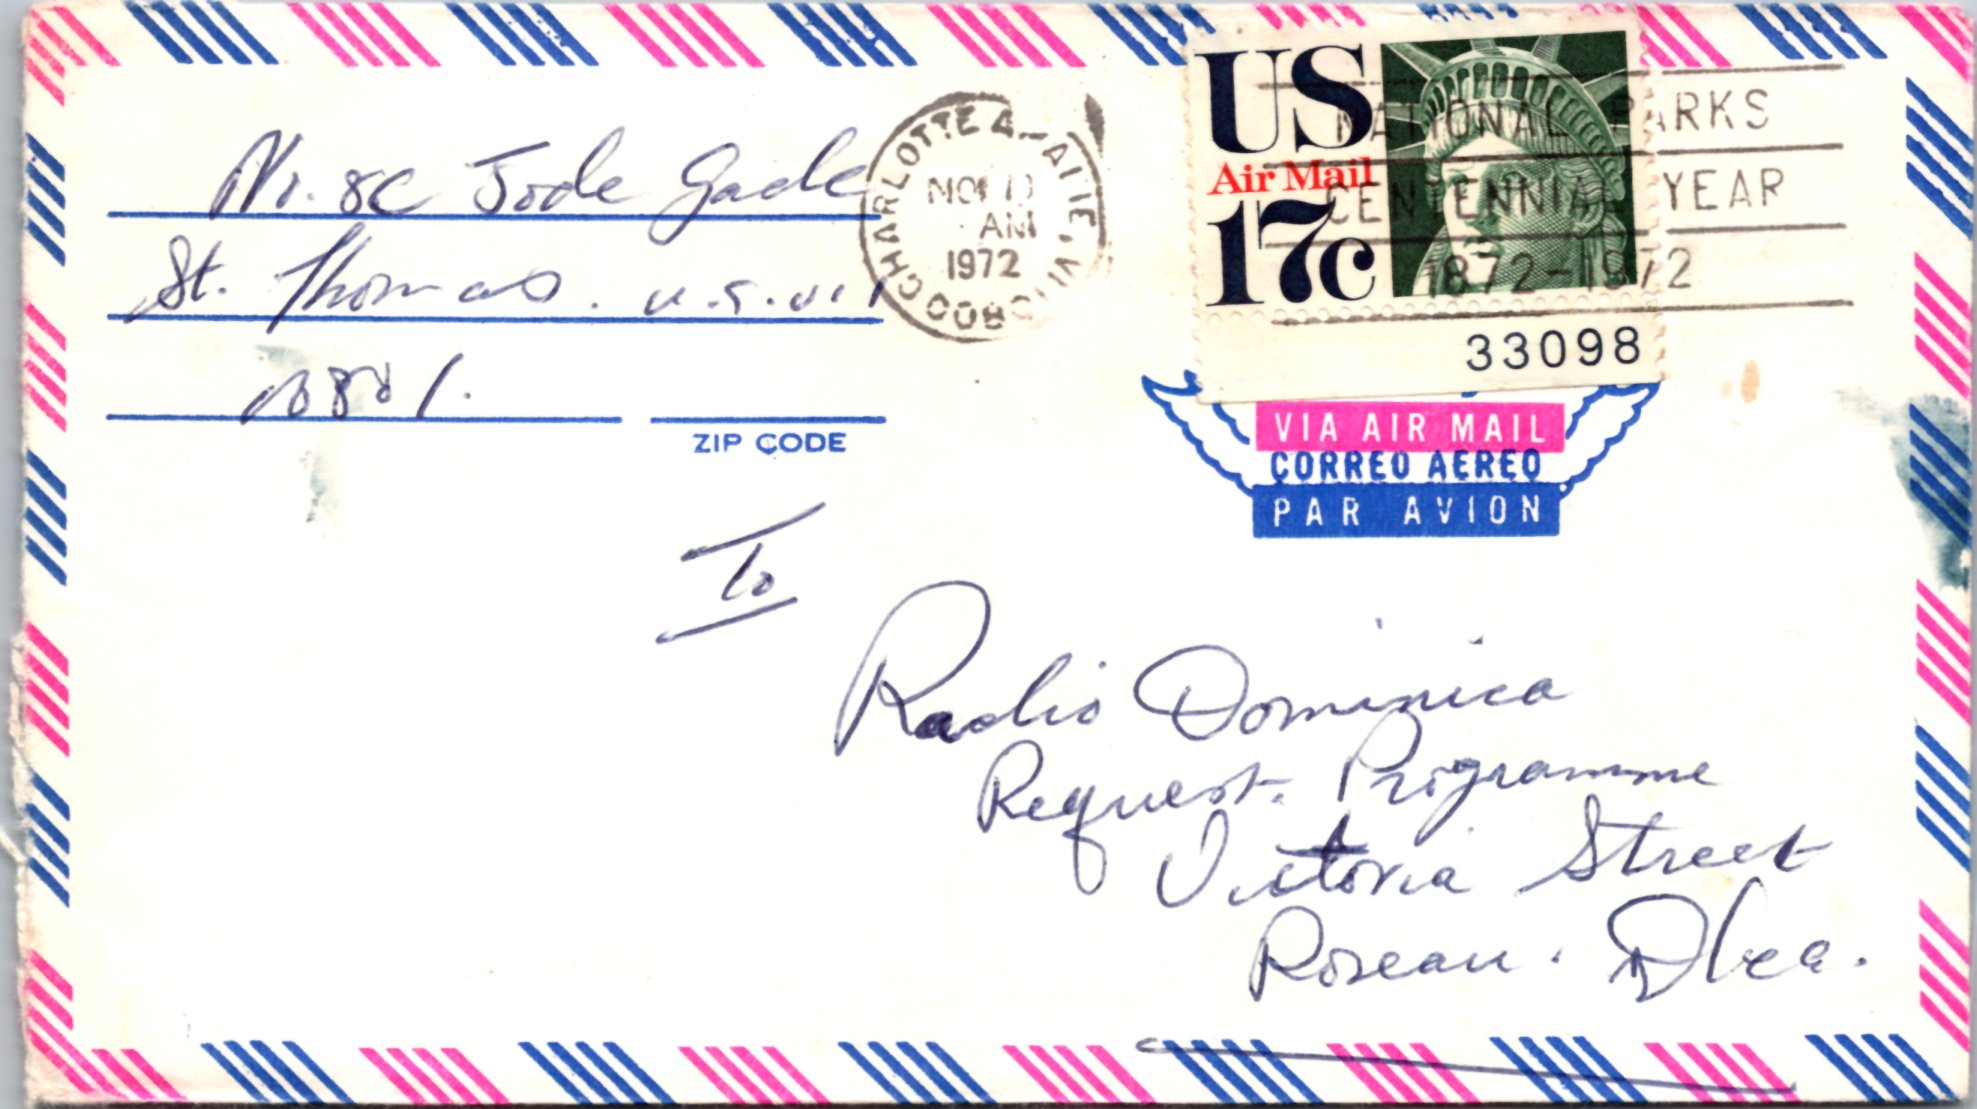 No. 8C Jode Gade
St. Thomas. U.S. V.I
00801.
ZIP CODE
CHARLOTTE A
ALIE, VI
008
AM
1972
US
Air Mail
17c
33098
NATIONAL PARKS
CENTENNIAL YEAR
1872-1972
VIA AIR MAIL
CORREO AEREO
PAR AVION
To
Radio Dominica
Request Programme
Victoria Street
Roseau. D/ca.